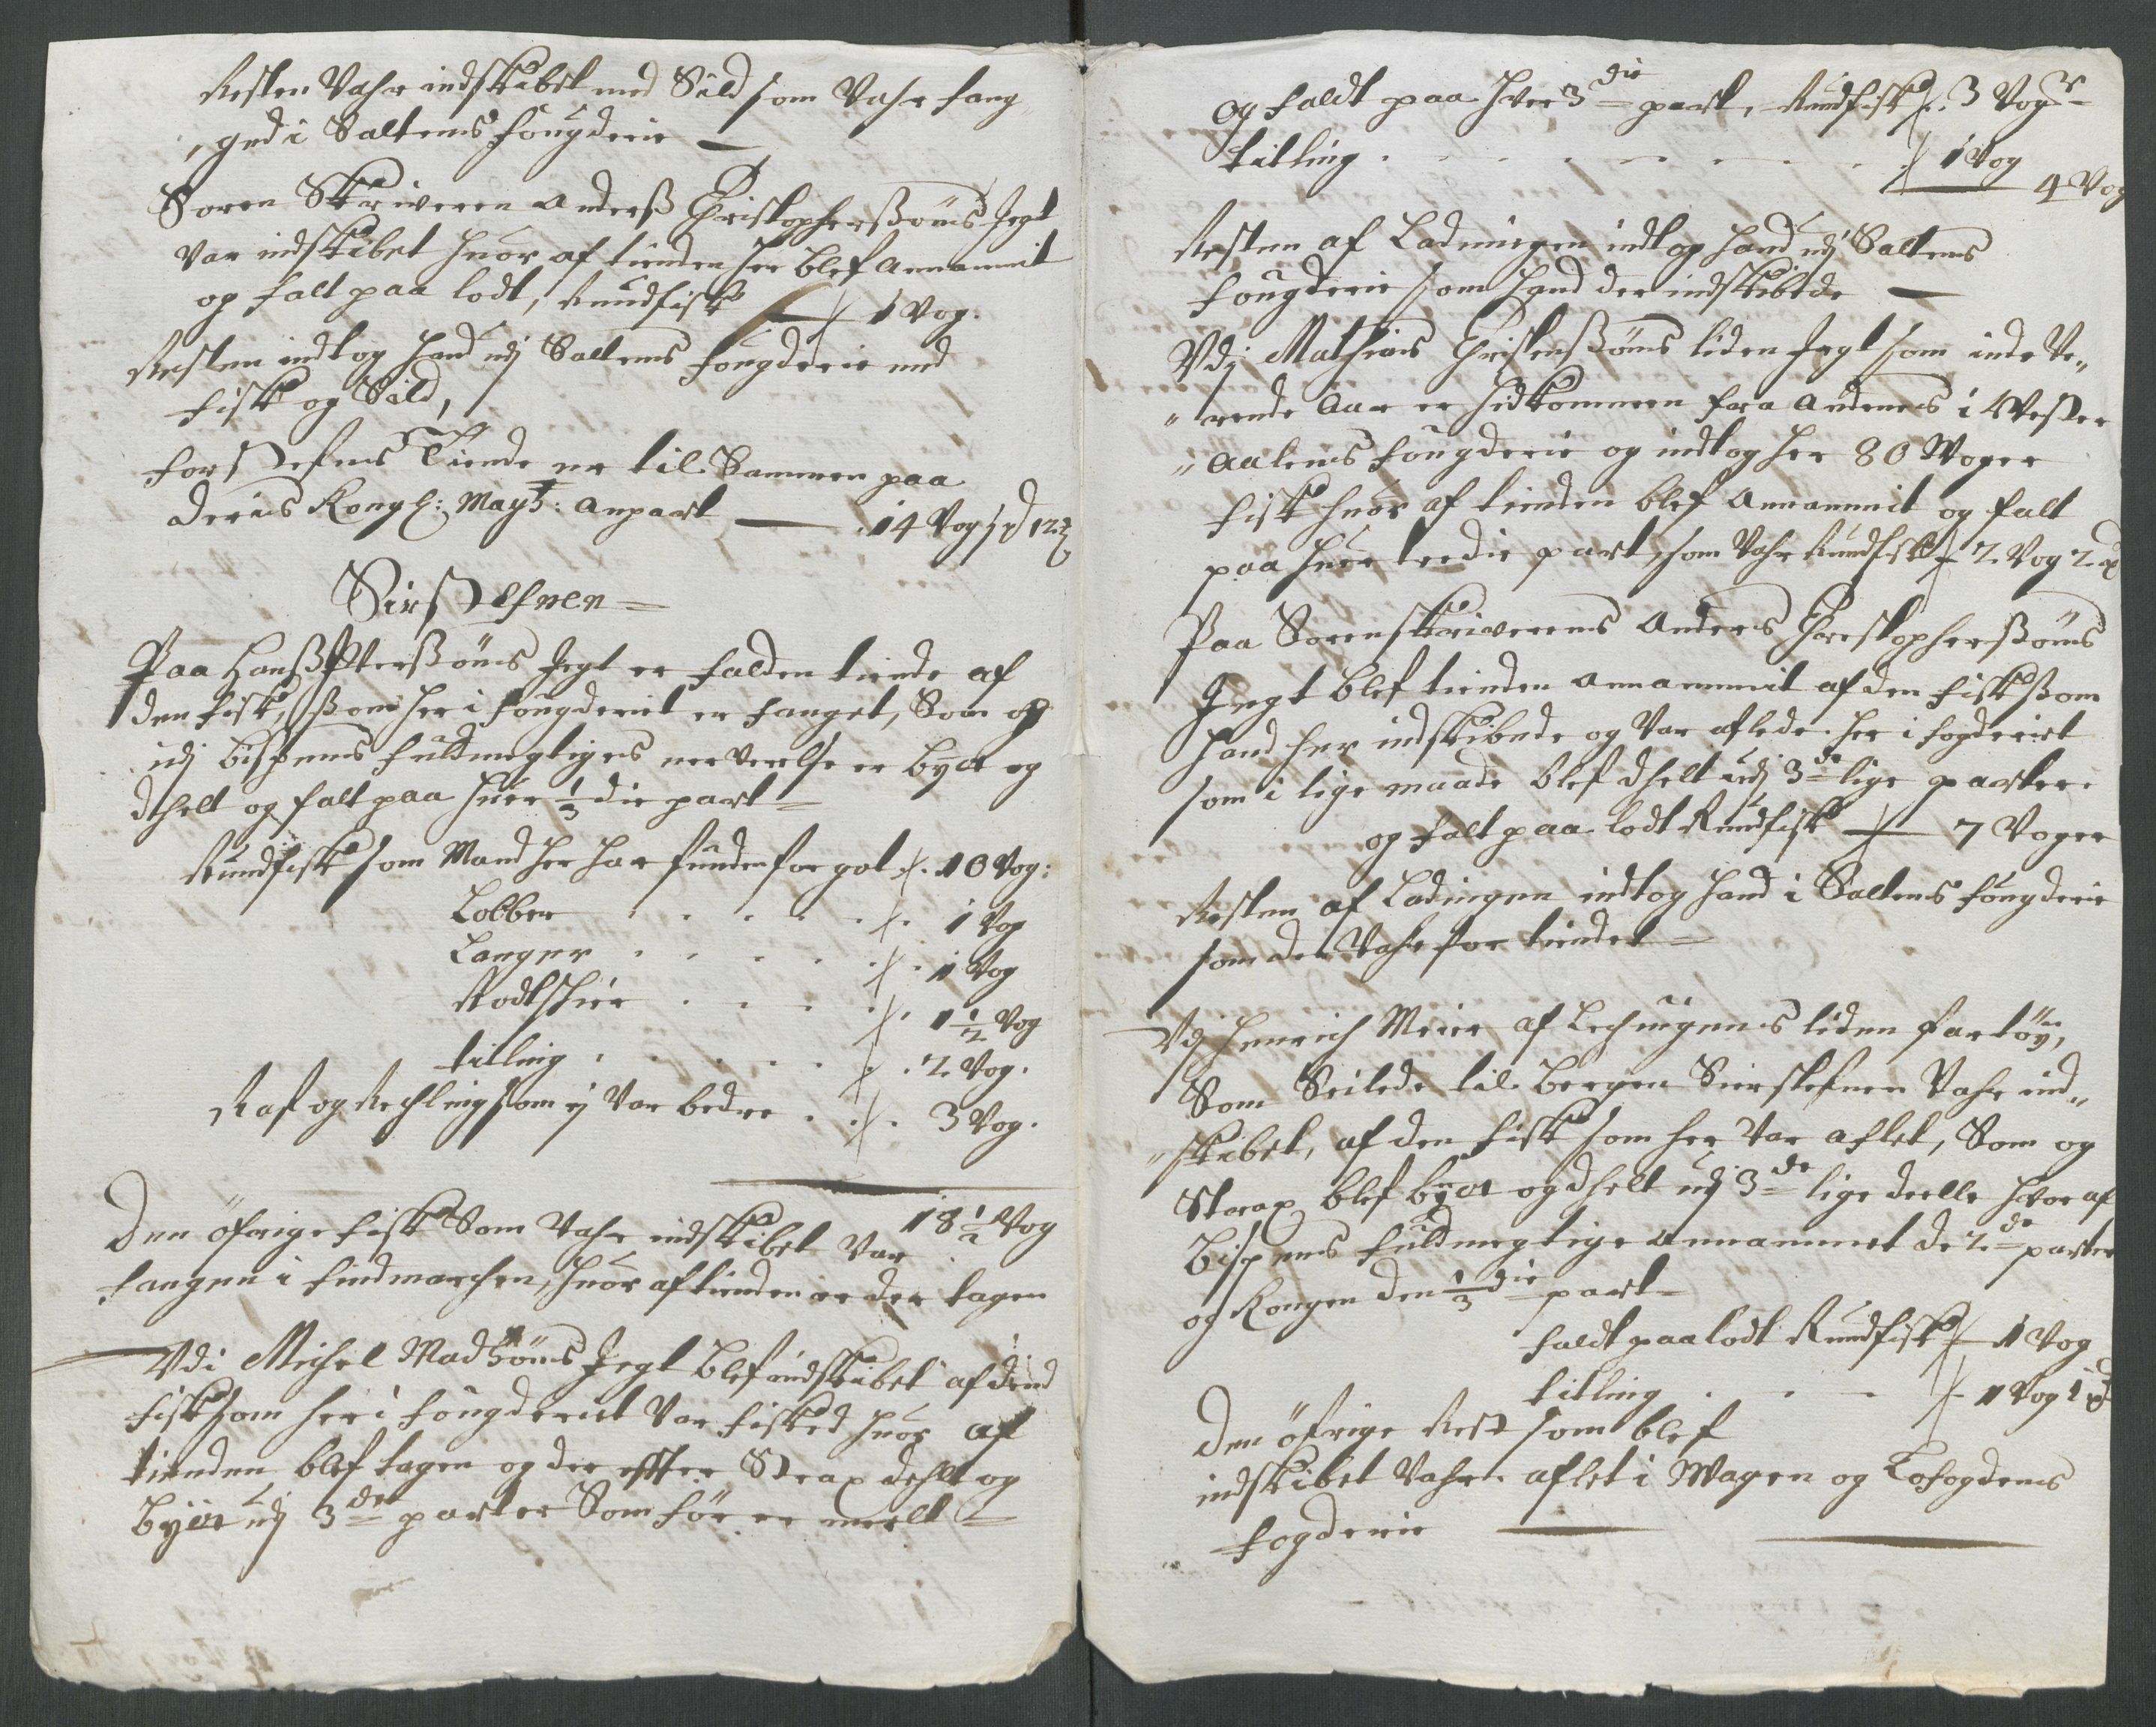 Resten Vahr indskibet med Sild som Vahr fang
„ged i Saltens fougderie —
Soren Skriweren Anderß Christopherßøns Jegt
Var indskibet huor af tienden her blef Annammit
og falt paa lodt, Rundfisk — 1 Vog.
Resten indtog hand udj Saltens fougderie med
fisk og Sild,
for Stefns Tiende er til Sammen paa
Deris Kongl: Mayts: anpart — 14 Vog 1 pd 12
Sirstefnen =
Paa Hanß Pterßøns Jegt er falden tiende af
den fisk, ßom her i fougderiet er fanget, Som og
udj bispens fuldmegtiges nerverelse er byt og
dhelt og falt paa huer 1/3 die part =
Rundfisk som Mand her har funden for got 10 Vog:
Lobber . . . . . 1 Vog
Langer . . . . . 1 Vog
Rodtskier . . . . 1 1/2 Vog
titling . . . . . 2 Vog.
Raf og Rechling som ej Var bedre . . 3 Vog.
18 1/2 Vog
Den öfrige fisk Som Vahr indskibet Var
fangen i findmarchen, huor af tienden er der tagen
Vdi Michel Madsøns Jegt blef indskibet af dend
fisk som her i fougderiet Var fisked huor af
tienden blef tagen og der effter Strax dehlt og
byt udj 3de parter Som för er melt =
og faldt paa hver 3die part, Rundfisk 3 Voger
titling . . . . . . . 1 Vog
4 Vog
Resten af Ladningen indtog hand udj Saltens
fougderie som hand der indskibede —
Vdj Mathias Christenßøns liden Jegt som inde We„
„rende Aar er hidkommen fra Andenes i Wester
„Aalens fougderie og indtog her 80 Woger
fisk huor af tienden blef Annammit og falt
paa huer tredie part, som Vahr Rundfisk 2 Vog 2 pd
Paa Sorenskriwerens Anders Chrestopherßøns
Jegt blef tienden annammit af den fisk ßom
hand her indskibede og Var aflede her i fogderiet
som i lige maade blef dhelt udj 3de lige parter
og falt paa lodt Rundfisk — 7 Voger
Resten af Ladingen indtog hand i Saltens fougderie
som der Vahr for tiendet =
Vdj Henrich Meier af Lechangens liden fartöy,
Som Seilede til Bergen Sierstefnen Vahr ind„
„skibet, af den fisk som her Var aflet, Som og
Strax blef byt og dhelt udj 3de lige deelle hvor af
Bispens fuldmegtige annammet de 2de parter
og Kongen den 1/3 die part =
faldt paa lodt Rundfisk 1 Vog
titling . . . 1 Vog 1 pd
Den öfrige Rest som blef
indskibet Vahr aflet i Wagen og Lofogdens
fogderie —